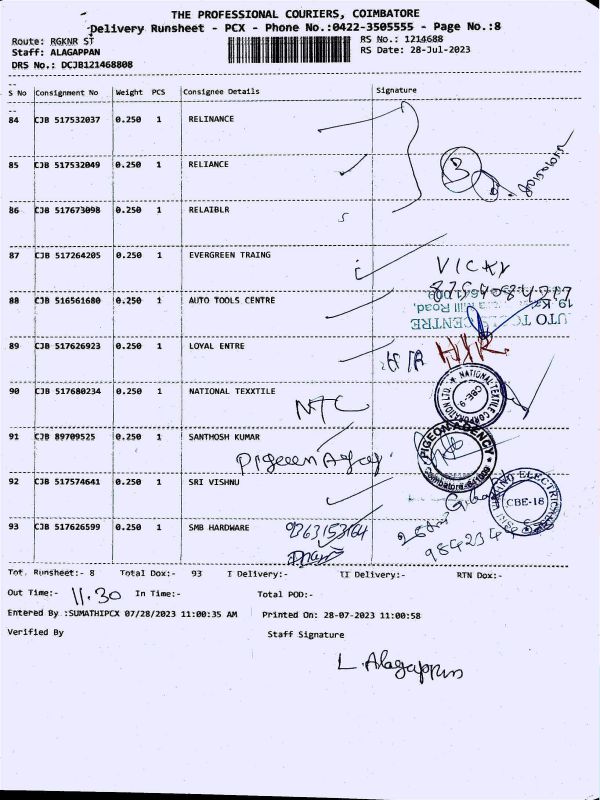 THE PROFESSIONAL COURIERS, COIMBATORE
Delivery Runsheet - PCX - Phone No.:0422-3505555 - Page No.:8
Route: RGKNR ST RS No.: 1214688
Staff: ALAGAPPAN RS Date: 28-Jul-2023
DRS No.: DCJB121468808
S No Consignment No Weight PCS Consignee Details Signature
84 CJB 517532037 0.250 1 RELINANCE
85 CJB 517532049 0.250 1 RELIANCE
B
86 CJB 517673098 0.250 1 RELAIBLR
87 CJB 517264205 0.250 1 EVERGREEN TRAING
VICKY
88 CJB 516561680 0.250 1 AUTO TOOLS CENTRE
89 CJB 517626923 0.250 1 LOYAL ENTRE
90 CJB 517680234 0.250 1 NATIONAL TEXXTILE
NTC
NATIONAL TEXTILE CORPORATION LTD.
CBE-9
91 CJB 89709525 0.250 1 SANTHOSH KUMAR
PIGEON AGENCY
Coimbatore-641009
92 CJB 517574641 0.250 1 SRI VISHNU
CBE-18
93 CJB 517626599 0.250 1 SMB HARDWARE 9363153164
Tot. Runsheet:- 8 Total Dox:- 93 I Delivery:- II Delivery:- RTN Dox:-
Out Time:- 11.30 In Time:- Total POD:-
Entered By :SUMATHIPCX 07/28/2023 11:00:35 AM Printed On: 28-07-2023 11:00:58
Verified By Staff Signature
L. Alagappan